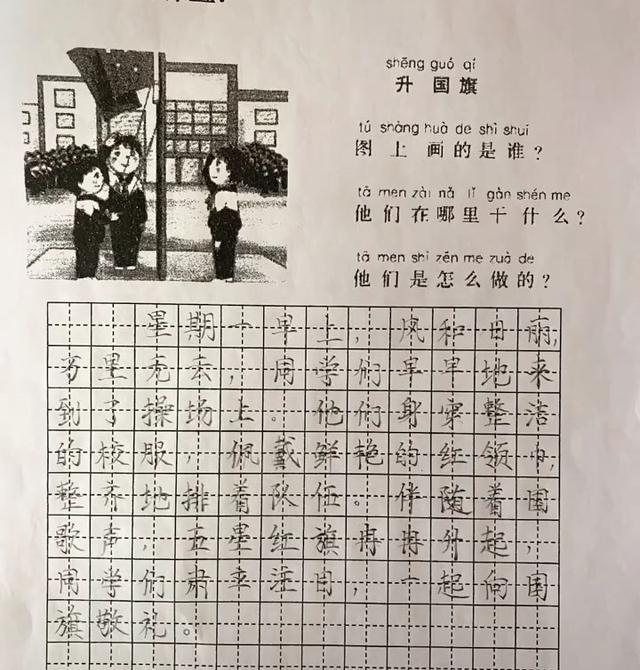 shēng guó qí
升国旗
tú shàng huà de shì shuí
图上画的是谁?
tā men zài nǎ lǐ gàn shén me
他们在哪里干什么?
tā men shì zěn me zuò de
他们是怎么做的?
星期一早上,风和日丽,
万里无云,同学们早早地来
到了操场上。他们身穿整洁
的校服,佩戴鲜艳的红领巾,
整齐地排着队伍。伴随着国
歌声,五星红旗冉冉升起,
同学们肃立注目,一起向国
旗敬礼。